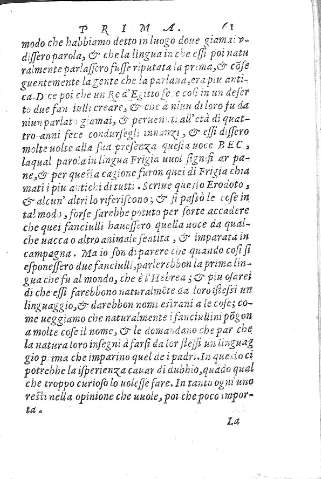 PRIMA. 61
modo che habbiamo detto in luogo doue giamai v-
dissero parola, & che la lingua in che essi poi natu
ralmente parlassero fusse riputata la prima, & cōse
guentemente la gente che la parlaua, era piu anti-
ca. Dice poi che un Re d'Egitto fe e così in un deser
to due fanciulli creare, & che à niun di loro fu da
niun parlato giamai, & peruenuti all'età di quat-
tro anni fece condursegli innanzi, & essi dissero
molte uolte alla sua presenza questa uoce BEC,
laqual parola in lingua Frigia uuol significar pa-
ne, & per questa cagione furon quei di Frigia chia
mati i piu antichi di tutti. Scriue questo Erodoto,
& alcun' altri lo riferiscono; & si passò le cose in
tal modo, forse sarebbe potuto per sorte accadere
che quei fanciulli hauessero quella uoce da qual-
che uacca o altro animale sentita, & imparata in
campagna. Ma io son di parere che quando così si
esponessero due fanciulli, parlerebbon la prima lin-
gua che fu al mondo, che è l'Hebrea; & piu oserei
di che essi farebbono naturalmēte da loro istessi un
linguaggio, & darebbon nomi estrani a le cose; co-
me ueggiamo che naturalmente i fanciullini pōgon
a molte cose il nome, & le domandano che par che
la natura loro insegni à farsi da lor stessi un linguag
gio prima che imparino quel de i padri. In questo ci
potrebbe la isperienza cauar di dubbio, quādo qual
che troppo curioso lo uolesse fare. In tanto ogni uno
resti nella opinione che uuole, poi che poco impor-
ta.
La